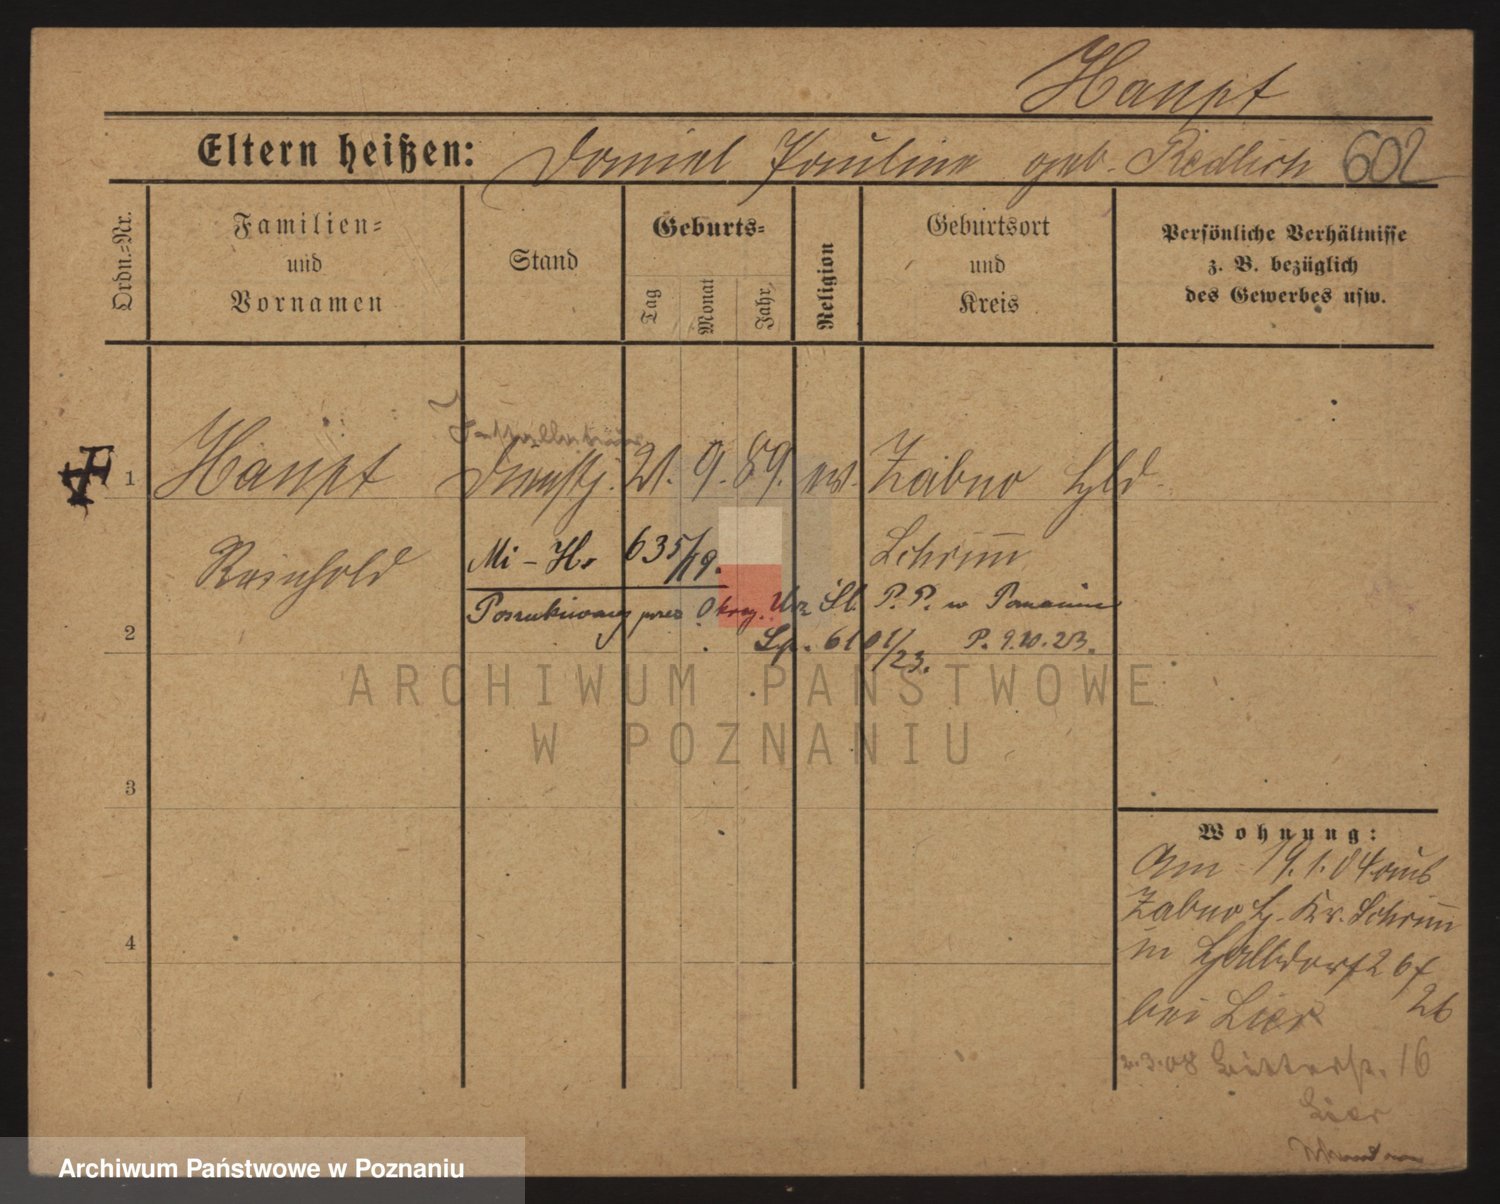 Haupt
Eltern heißen: Daniel Pauline geb. Redlich 602
Ordn.-Nr.
Familien-
und
Vornamen
Stand
Geburts-
Tag
Monat
Jahr
Religion
Geburtsort
und
Kreis
Persönliche Verhältnisse
z. B. bezüglich
des Gewerbes usw.
Installateur
1 Haupt Dienstj. 21. 9. 89. ev. Zabno Hld.
Reinhold Mi-H. 635/19. Schrimm
Poszukiwany przez Okręg. Urz. Śl. P. P. w Poznaniu
2 Lp. 6101/23. P. 9.10.23.
ARCHIWUM PAŃSTWOWE
W POZNANIU
3
Wohnung:
Am 19.1.04 aus
Zabno H. Kr. Schrimm
4
in Halbdorf
26
bei Lier
2.3.08 16
Lier
Archiwum Państwowe w Poznaniu